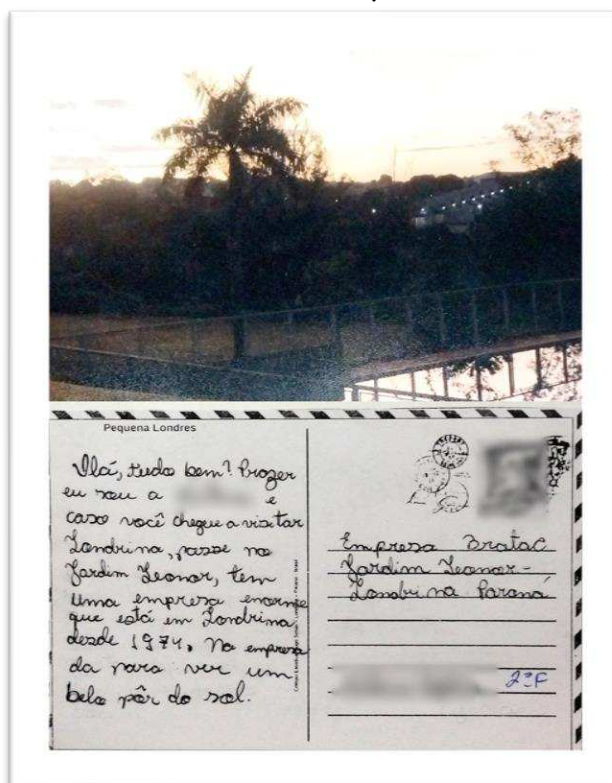 Pequena Londres
Olá, tudo bem? Prazer
eu sou a e
caso você chegue a visitar
Londrina, passe no
Jardim Leonor, tem
uma empresa enorme
que está em Londrina
desde 1974. Na empresa
da para ver um
belo pôr do sol.
Empresa Bratac
Jardim Leonor -
Londrina Paraná
2ºF